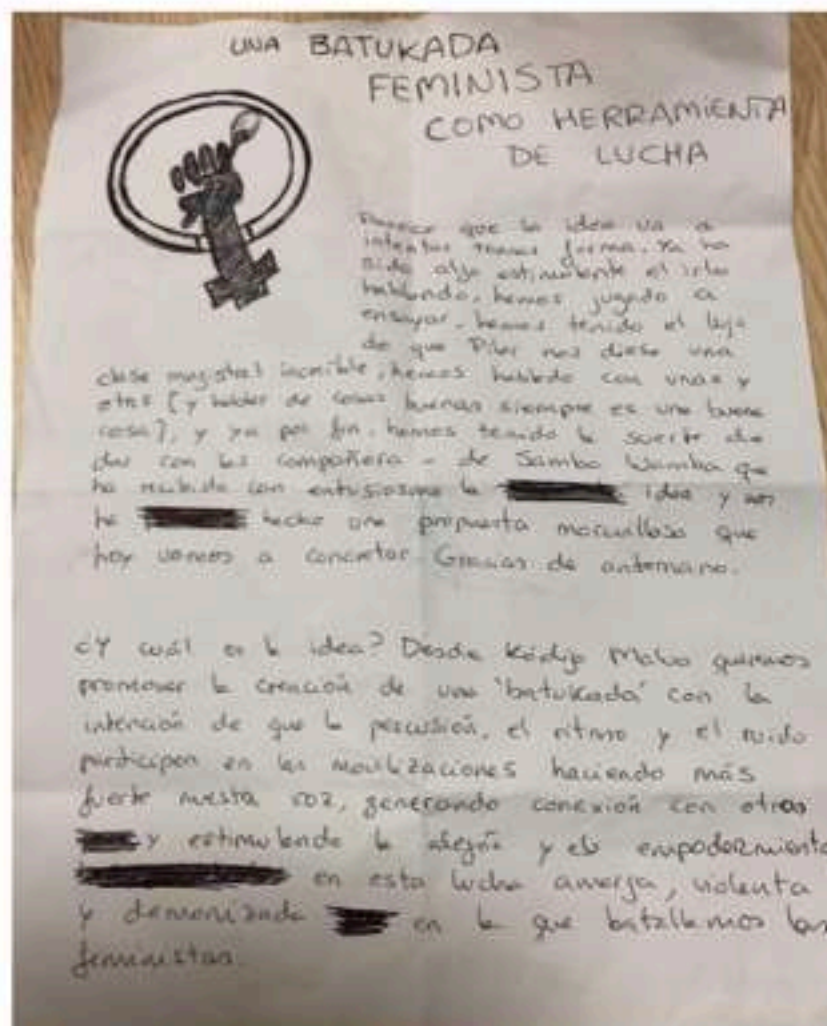 UNA BATUKADA
FEMINISTA
COMO HERRAMIENTA
DE LUCHA
Parece que la idea va a
intentar tomar forma. Ya ha
sido algo estimulante el irlo
hablando, hemos jugado a
ensayar, hemos tenido el lujo
de que Pilar nos diese una
clase magistral increíble, hemos hablado con unas y
otras [y hablar de cosas buenas siempre es una buena
cosa], y ya por fin, hemos tenido la suerte de
dar con las compañera - de Samba Wamba que
ha recibido con entusiasmo la idea y nos
ha hecho una propuesta maravillosa que
hoy vamos a concretar. Gracias de antemano.
¿Y cuál es la idea? Desde Kódigo Malva queremos
promover la creación de una 'batukada' con la
intención de que la percusión, el ritmo y el ruido
participen en las movilizaciones haciendo más
fuerte nuestra voz, generando conexión con otras
y estimulando la alegría y el empoderamiento
en esta lucha amarga, violenta
y demonizada en la que batallamos las
feministas.